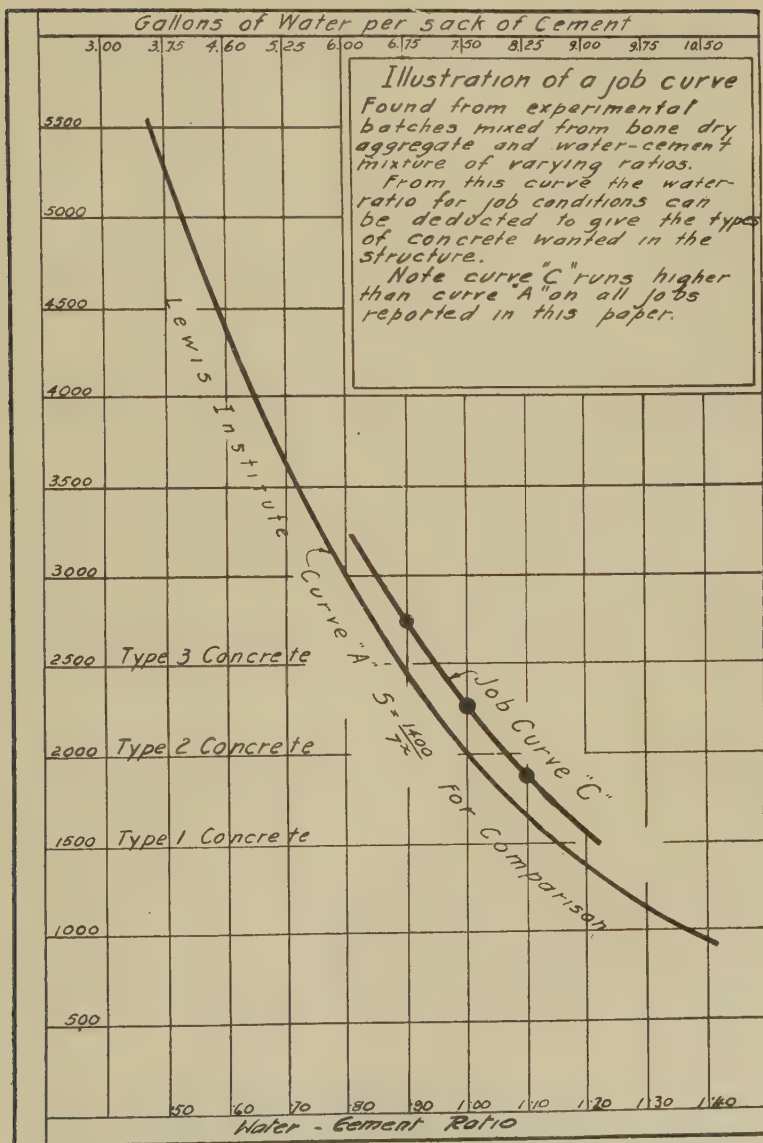 Gallons of Water per sack of Cement
3.00 3.75 4.60 5.25 6.00 6.75 7.50 8.25 9.00 9.75 10.50
Illustration of a job curve
Found from experimental
batches mixed from bone dry
aggregate and water-cement
mixture of varying ratios.
From this curve the water-
ratio for job conditions can
be deducted to give the types
of concrete wanted in the
structure.
Note curve "C" runs higher
than curve "A" on all jobs
reported in this paper.
5500
5000
4500
4000
3500
3000
2500 Type 3 Concrete
2000 Type 2 Concrete
1500 Type 1 Concrete
1000
500
Lewis Institute Curve "A" S = 1400/7x for Comparison
Job Curve "C"
.50 .60 .70 .80 .90 1.00 1.10 1.20 1.30 1.40
Water-Cement Ratio